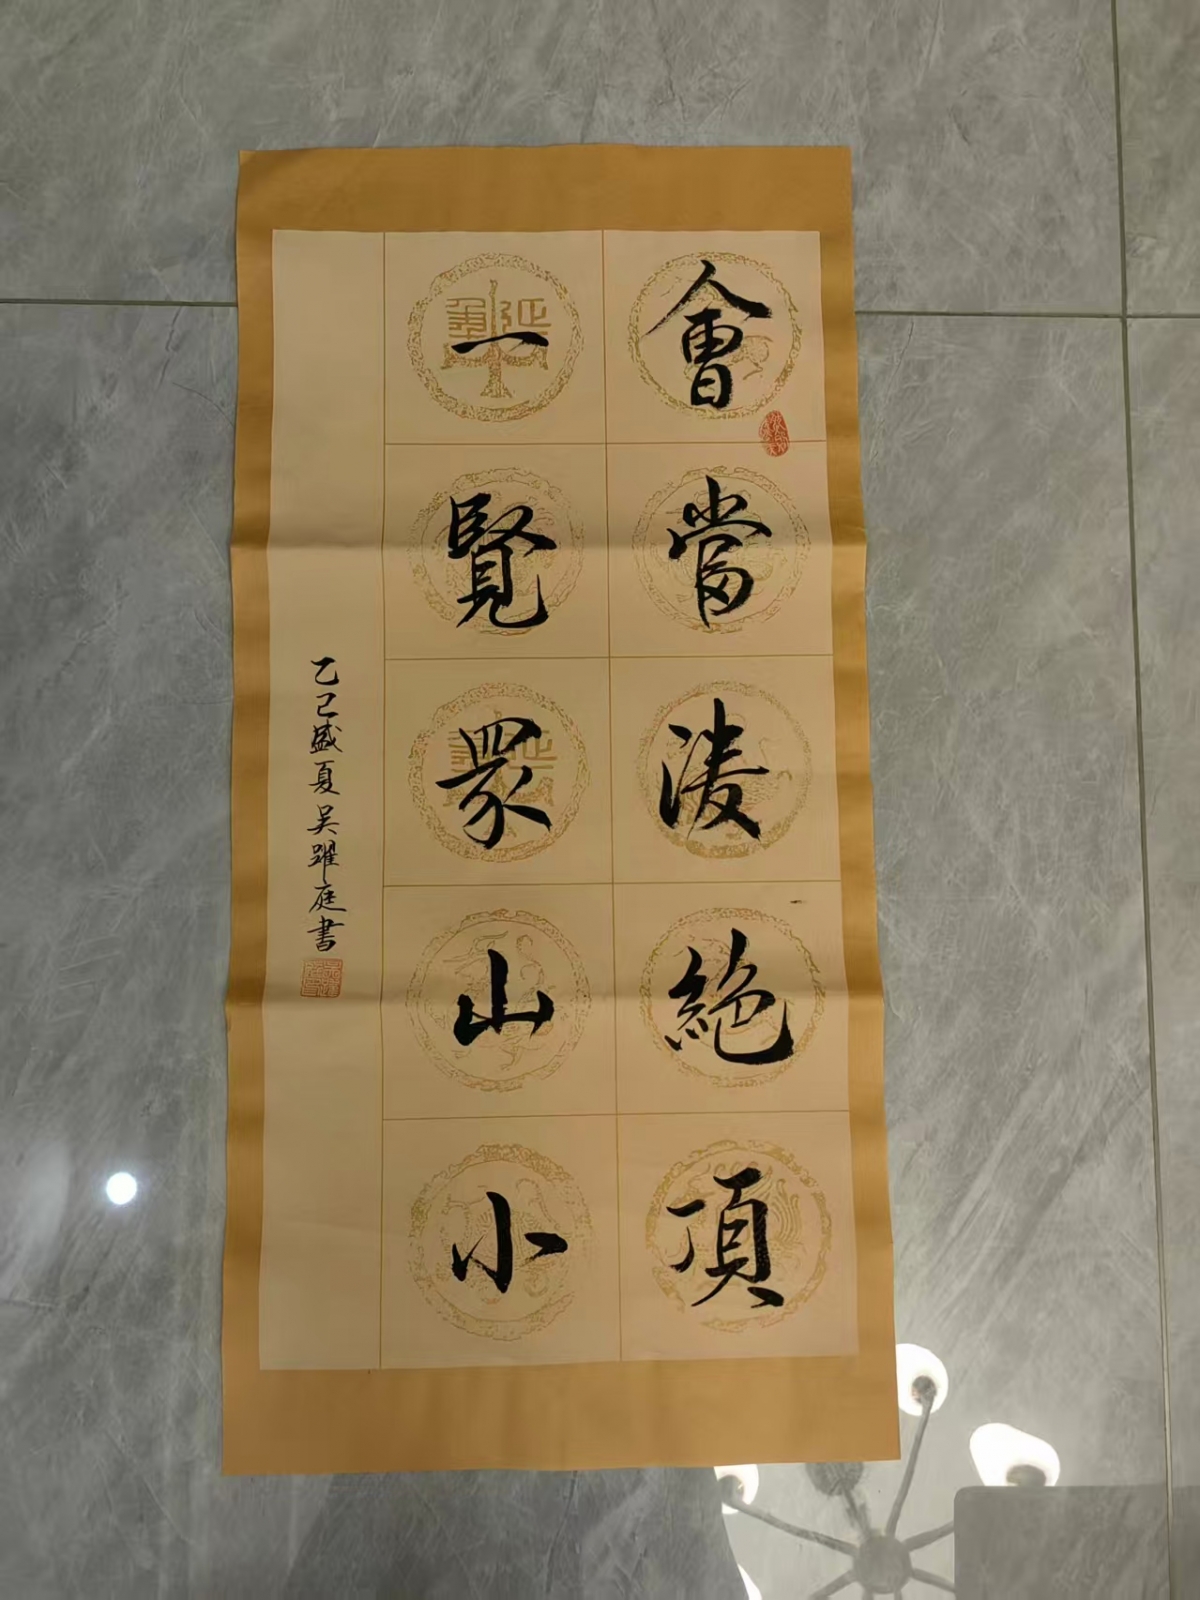 會當凌絕頂
一覽眾山小
乙巳盛夏吴躍庭書